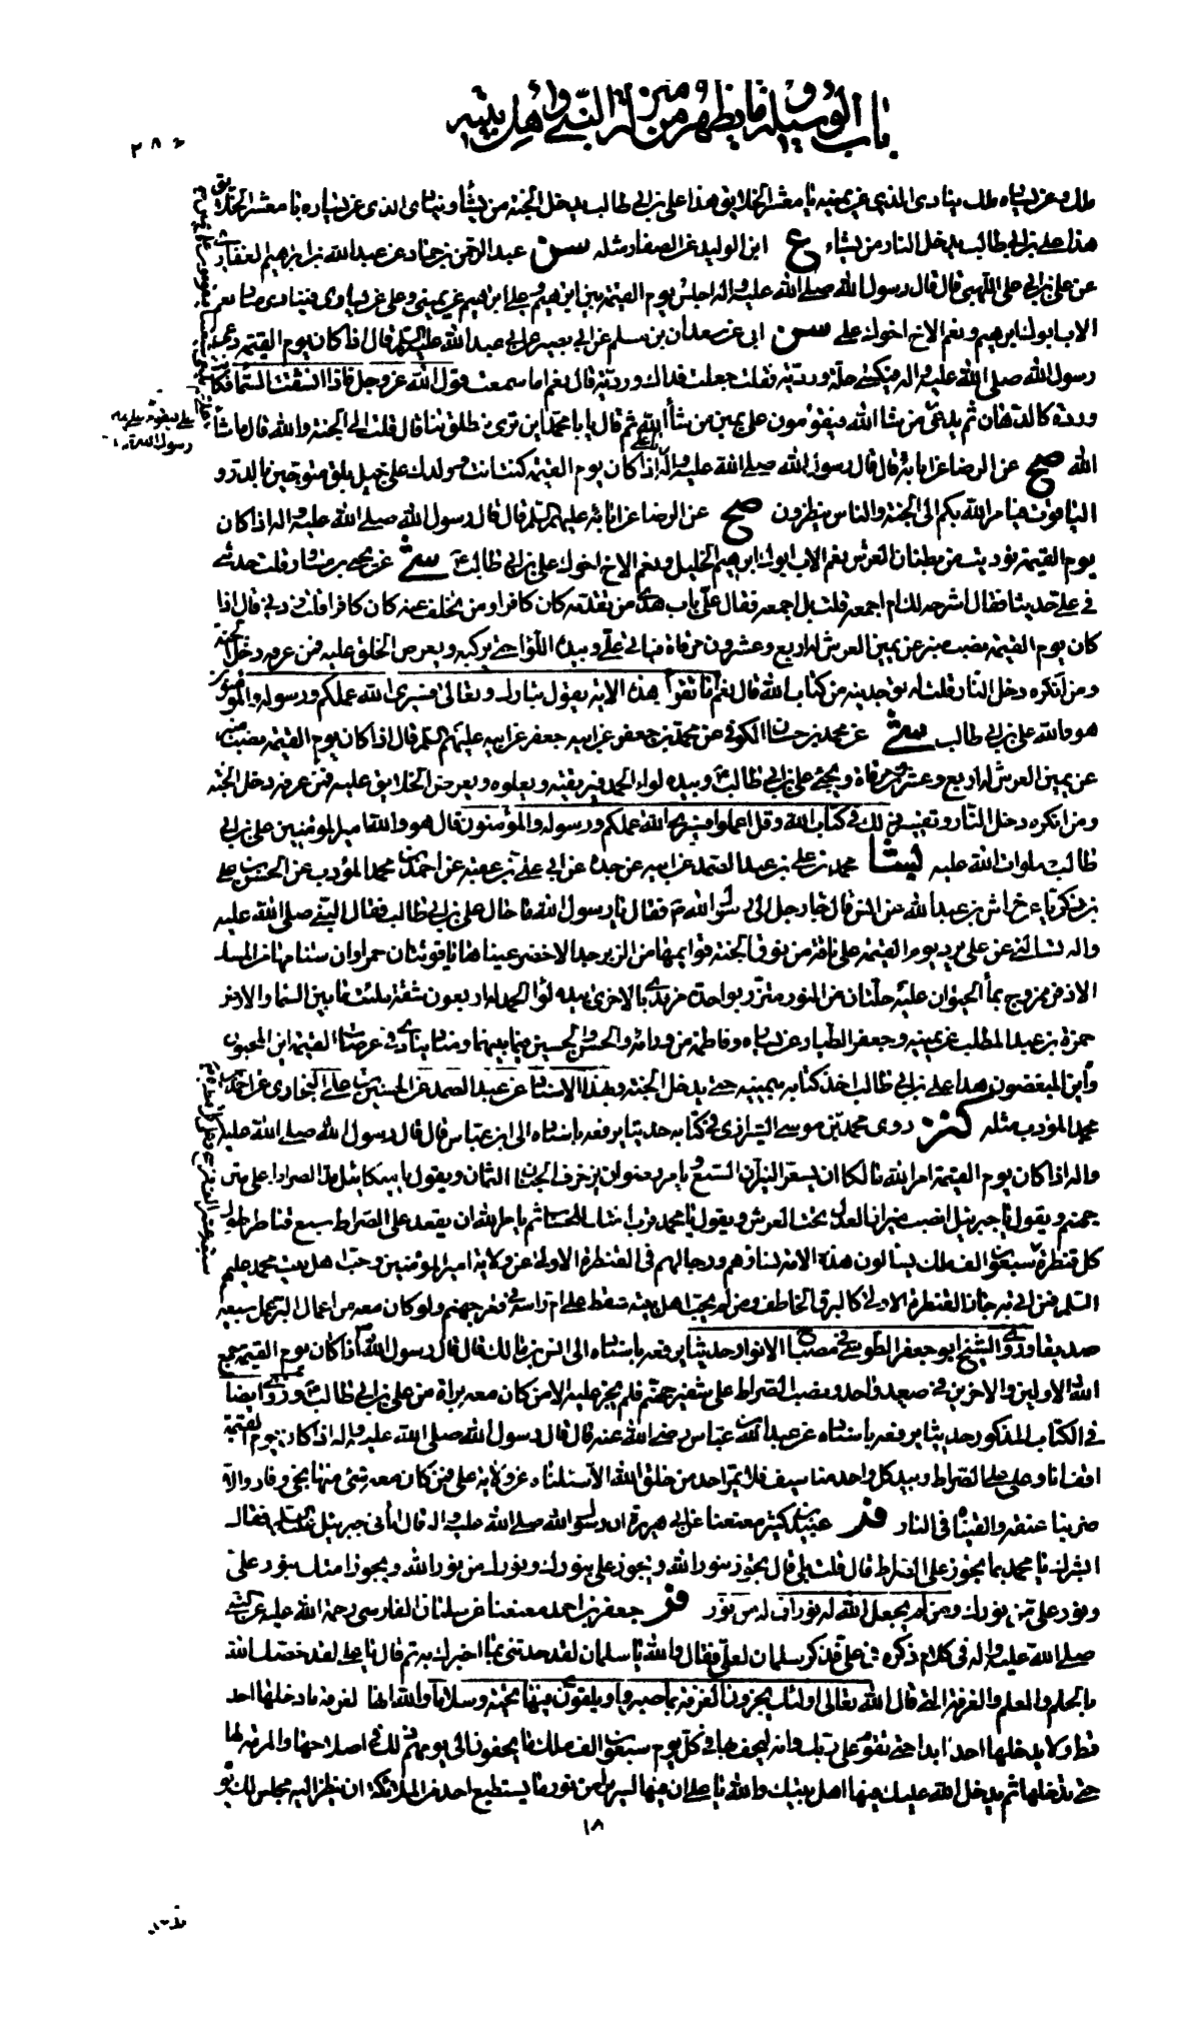 باب الوسيلة وما يظهر من منزلة النبي واهل بيته
٢٨٦
ملك وعن يساره ملك ينادى الذى عن يمينه يا معشر الخلايق هذا على بن ابى طالب يدخل الجنة من يشأ وينادى الذى عن يساره يا معشر الخلايق
هذا على بن ابى طالب يدخل النار من يشاء ع ابن الوليد عن الصفار مثله سن عبد الرحمن بن حماد عن عبد الله بن ابراهيم الغفارى
عن على بن ابى على اللهبى قال قال رسول الله صلى الله عليه واله اجلس يوم القيمة بين ابراهيم وعلى ابراهيم عن يمينى وعلى عن يسارى فينادى مناد نعم
الاب ابوك ابراهيم ونعم الاخ اخوك على سن ابى عن سعدان بن مسلم عن ابى بصير عن ابى عبد الله عليه السلم قال اذا كان يوم القيمة دعى
رسول الله صلى الله عليه واله فيكسى حلة وردية فقلت جعلت فداك وردية قال نعم اما سمعت قول الله عز وجل فاذا انشقت السماء فكانت
وردة كالدهان ثم يدعى من شا الله فيقومون على يمين من شأ الله ثم قال يا با محمد اين ترى ينطلق بنا قال قلت الى الجنة والله قال ما شأ
الله صح عن الرضا عن ابائه قال قال رسول الله صلى الله عليه واله يا على اذا كان يوم القيمة كنت انت وولدك على خيل بلق متوجين بالدر و
الياقوت فيامر الله بكم الى الجنة والناس ينظرون صح عن الرضا عن ابائه عليهم السلم قال قال رسول الله صلى الله عليه واله اذا كان
يوم القيمة نوديت من بطنان العرش نعم الاب ابوك ابراهيم الخليل ونعم الاخ اخوك على بن ابى طالب شى عن يحيى بن مساور قلت حدثنى
فى على حديثا فقال اشرحه لك ام اجمعه قلت بل اجمعه فقال على باب هدى من تقدمه كان كافرا ومن تخلف عنه كان كافرا قلت زدنى قال اذا
كان يوم القيمة نصب منبر عن يمين العرش له اربع وعشرون مرقاة فياتى على وبيده اللوآ حتى يركبه ويعرض الخلق عليه فمن عرفه دخل الجنة
ومن انكره دخل النار قلت له توجدنيه من كتاب الله قال نعم ما تقرأ هذه الاية يقول تبارك وتعالى فسيرى الله عملكم ورسوله والمؤمنون
هو والله على بن ابى طالب شى عن محمد بن حسان الكوفى عن محمد بن جعفر عن ابيه جعفر عن ابيه عليهم السلم قال اذا كان يوم القيمة نصب منبر
عن يمين العرش له اربع وعشرون مرقاة ويجئ على بن ابى طالب وبيده لواء الحمد فيرتقيه ويعلوه ويعرض الخلايق عليه فمن عرفه دخل الجنة
ومن انكره دخل النار وتفسير ذلك فى كتاب الله وقل اعملوا فسيرى الله عملكم ورسوله والمؤمنون قال هو والله امير المؤمنين على بن ابى
طالب صلوات الله عليه بشا محمد بن على بن عبد الصمد عن ابيه عن جده عن ابى على بن عقبة عن احمد بن محمد المؤدب عن الحسن بن على
بن زكريا عن خراش بن عبد الله عن انس قال جاء رجل الى رسول الله ص فقال يا رسول الله ما حال على بن ابى طالب فقال النبى صلى الله عليه
واله تسالنى عن على يرد يوم القيمة على ناقة من نوق الجنة قوايمها من الزبرجد الاخضر عيناها ياقوتتان حمراوان سنامها من المسك
الاذفر ممزوج بمأ الحيوان عليه حلتان من النور متزر بواحدة مرتدى بالاخرى بيده لوآ الحمد له اربعون شقة ملئت ما بين السماء والارض
حمزة بن عبد المطلب عن يمينه وجعفر الطيار عن يساره وفاطمة من ورائه والحسن والحسين فيما بينهما ومناد ينادى فى عرصات القيمة اين المحبون
واين المبغضون هذا على بن ابى طالب اخذ كتابه بيمينه حتى يدخل الجنة وبهذا الاسناد عن عبد الصمد عن الحسين بن على البخارى عن احمد بن
محمد المؤدب مثله كنز روى محمد بن موسى الشيرازى فى كتابه حديثا يرفعه باسناده الى ابن عباس قال قال رسول الله صلى الله عليه
واله اذا كان يوم القيمة امر الله مالكا ان يسعر النيران السبع ويامر رضوان ان يزخرف الجنان الثمان ويقول يا ميكائيل مد الصراط على متن
جهنم ويقول يا جبرئيل انصب ميزان العدل تحت العرش ويقول يا محمد قرب امتك للحساب ثم يامر الله ان يعقد على الصراط سبع قناطر طول
كل قنطرة سبعون الف ملك يسالون هذه الامة نساؤهم ورجالهم فى القنطرة الاولى عن ولاية امير المؤمنين وحب اهل بيت محمد عليهم
السلم فمن اتى به جاز القنطرة الاولى كالبرق الخاطف ومن لم يحب اهل بيته سقط على ام راسه فى قعر جهنم ولو كان معه من اعمال البر عمل سبعين
صديقا وروى الشيخ ابو جعفر الطوسى فى مصباح الانوار حديثا يرفعه باسناده الى انس بن مالك قال قال رسول الله اذا كان يوم القيمة جمع
الله الاولين والاخرين فى صعيد واحد ونصب الصراط على شفير جهنم فلم يجز عليه الا من كان معه براة من على بن ابى طالب وروى ايضا
فى الكتاب المذكور حديثا يرفعه باسناده عن عبد الله بن عباس رضى الله عنه قال قال رسول الله صلى الله عليه واله اذا كان يوم القيمة
اقف انا وعلى على الصراط وبيد كل واحد منا سيف فلا يمر احد من خلق الله الا سئلناه عن ولاية على فمن كان معه شئ منها نجى وفاز والا
ضربنا عنقه والقيناه فى النار فر عبيد بن كثير معنعنا عن ابى هريرة ان رسول الله صلى الله عليه واله قال اتانى جبرئيل فقال
ابشرك يا محمد بما تجوز على الصراط قال قلت بلى قال تجوز بنور الله ويجوز على بنورك ونورك من نور الله وتجوز امتك بنور على
ونور على من نورك ومن لم يجعل الله له نورا فما له من نور فر جعفر بن احمد معنعنا عن سلمان الفارسى رحمة الله عليه عن النبى
صلى الله عليه واله فى كلام ذكره فى على فذكر سلمان لعلى فقال والله يا سلمان لقد حدثنى بما اخبرك به ثم قال يا على لقد خصك الله
بالحلم والعلم والغرفة التى قال الله تعالى اولئك يجزون الغرفة بما صبروا ويلقون فيها تحية وسلاما والله انها لغرفة ما دخلها احد
قط ولا يدخلها احد ابدا حتى تقوم على ربك وانه ليحف بها فى كل يوم سبعون الف ملك ما يحفون الى يومهم ذلك فى اصلاحها والمرمة لها
حتى تدخلها ثم يدخل الله عليك فيها اهل بيتك والله يا على ان فيها لسريرا من نور ما يستطيع احد من الملائكة ان ينظر اليه مجلس لك يو
١٨